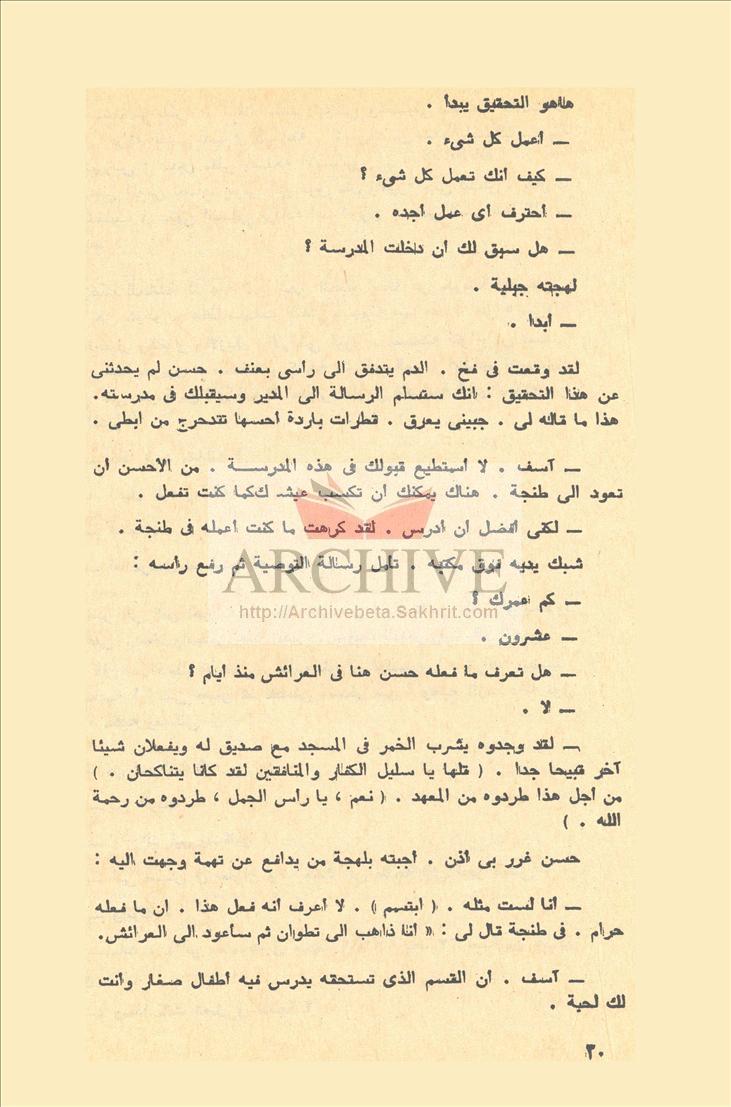 هاهو التحقيق يبدأ .
— أعمل كل شىء .
— كيف أنك تعمل كل شىء ؟
— أحترف أى عمل أجده .
— هل سبق لك أن دخلت المدرسة ؟
لهجته جبلية .
— أبدا .
لقد وقعت فى فخ . الدم يتدفق الى رأسى بعنف . حسن لم يحدثنى
عن هذا التحقيق : انك ستسلم الرسالة الى المدير وسيقبلك فى مدرسته.
هذا ما قاله لى . جبينى يعرق . قطرات باردة أحسها تتدحرج من ابطى .
— آسف . لا أستطيع قبولك فى هذه المدرســـة . من الأحسن أن
تعود الى طنجة . هناك يمكنك أن تكسب عيشـ ككما كنت تفعل .
— لكنى أفضل أن أدرس . لقد كرهت ما كنت أعمله فى طنجة .
شبك يديه فوق مكتبه . تأمل رسالة التوصية ثم رفع رأسه :
ARCHIVE
http://Archivebeta.Sakhrit.com
— كم عمرك ؟
— عشرون .
— هل تعرف ما فعله حسن هنا فى العرائش منذ أيام ؟
— لا .
— لقد وجدوه يشرب الخمر فى المسجد مع صديق له ويفعلان شيئا
آخر قبيحا جدا . ( قلها يا سليل الكفار والمنافقين لقد كانا يتناكحان . )
من أجل هذا طردوه من المعهد . ( نعم ، يا رأس الجمل ، طردوه من رحمة
الله . )
حسن غرر بى أذن . أجبته بلهجة من يدافع عن تهمة وجهت اليه :
— أنا لست مثله . ( ابتسم ) . لا أعرف أنه فعل هذا . ان ما فعله
حرام . فى طنجة قال لى : « أنا ذاهب الى تطوان ثم سأعود الى العرائش.
— آسف . أن القسم الذى تستحقه يدرس فيه أطفال صغار وأنت
لك لحية .
٣٠